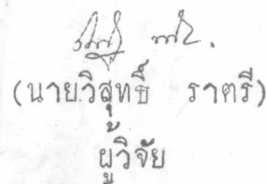 (นายวิสุทธิ์ ราตรี)
ผู้วิจัย